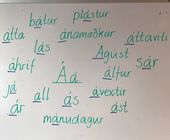 bátur plástur
átta ánamaðkur áttaviti
lás Ágúst
áhrif Áá álfur sár
já áll ás ávextir
ár ást
mánudagur